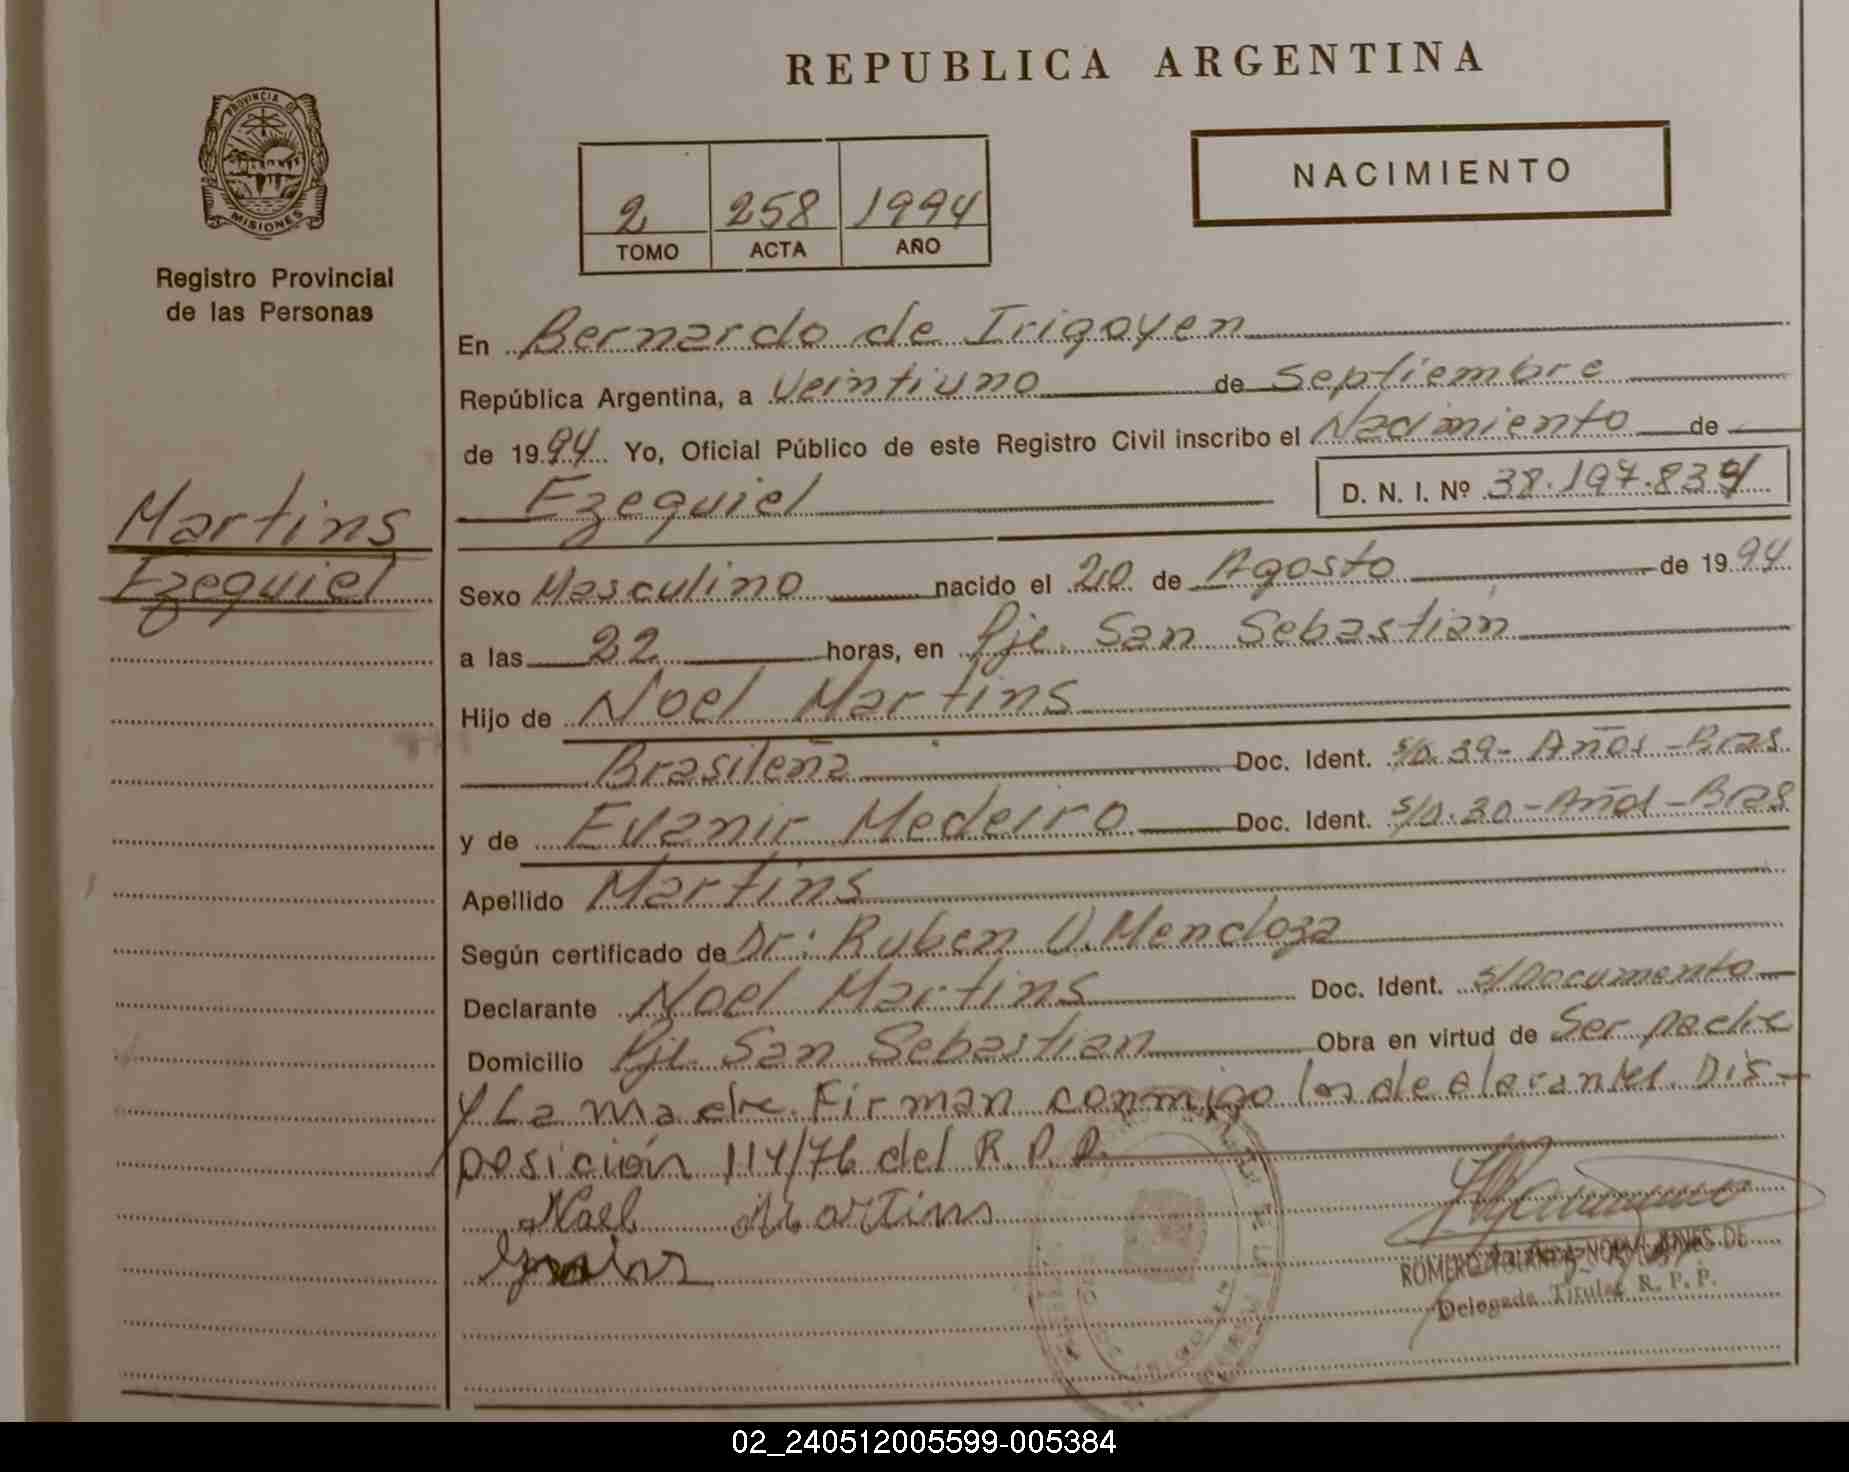 REPUBLICA ARGENTINA
PROVINCIA DE
MISIONES
Registro Provincial
de las Personas
2 258 1994
TOMO ACTA AÑO
NACIMIENTO
Martins
Ezequiel
En Bernardo de Irigoyen
República Argentina, a Veintiuno de Septiembre
de 1994 Yo, Oficial Público de este Registro Civil inscribo el Nacimiento de
Ezequiel D. N. I. Nº 38.197.839
Sexo Masculino nacido el 20 de Agosto de 1994
a las 22 horas, en Pje. San Sebastián
Hijo de Noel Martins
Brasileña Doc. Ident. s/D. 39- Años -Bras
y de Evanir Medeiro Doc. Ident. s/D. 30-Años-Bras
Apellido Martins
Según certificado de Dr: Ruben O. Mendoza
Declarante Noel Martins Doc. Ident. s/Documento
Domicilio Pje. San Sebastian Obra en virtud de Ser padre
y La madre. Firman conmigo los declarantes. Dis-
posición 114/76 del R. P. P.
Noel Martins
ROMERO YOLANDA NORMA DE
Delegada Titular R. P. P.
02_240512005599-005384